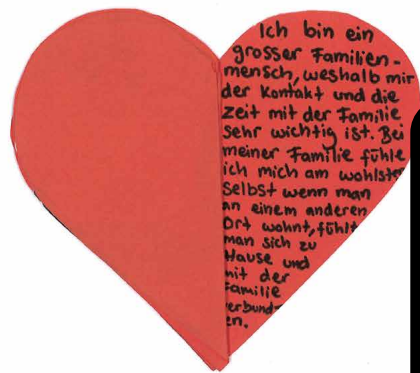 Ich bin ein
grosser Familien-
mensch, weshalb mir
der Kontakt und die
Zeit mit der Familie
sehr wichtig ist. Bei
meiner Familie fühle
ich mich am wohlsten
Selbst wenn man
an einem anderen
Ort wohnt, fühlt
man sich zu
Hause und
mit der
Familie
verbund-
en.